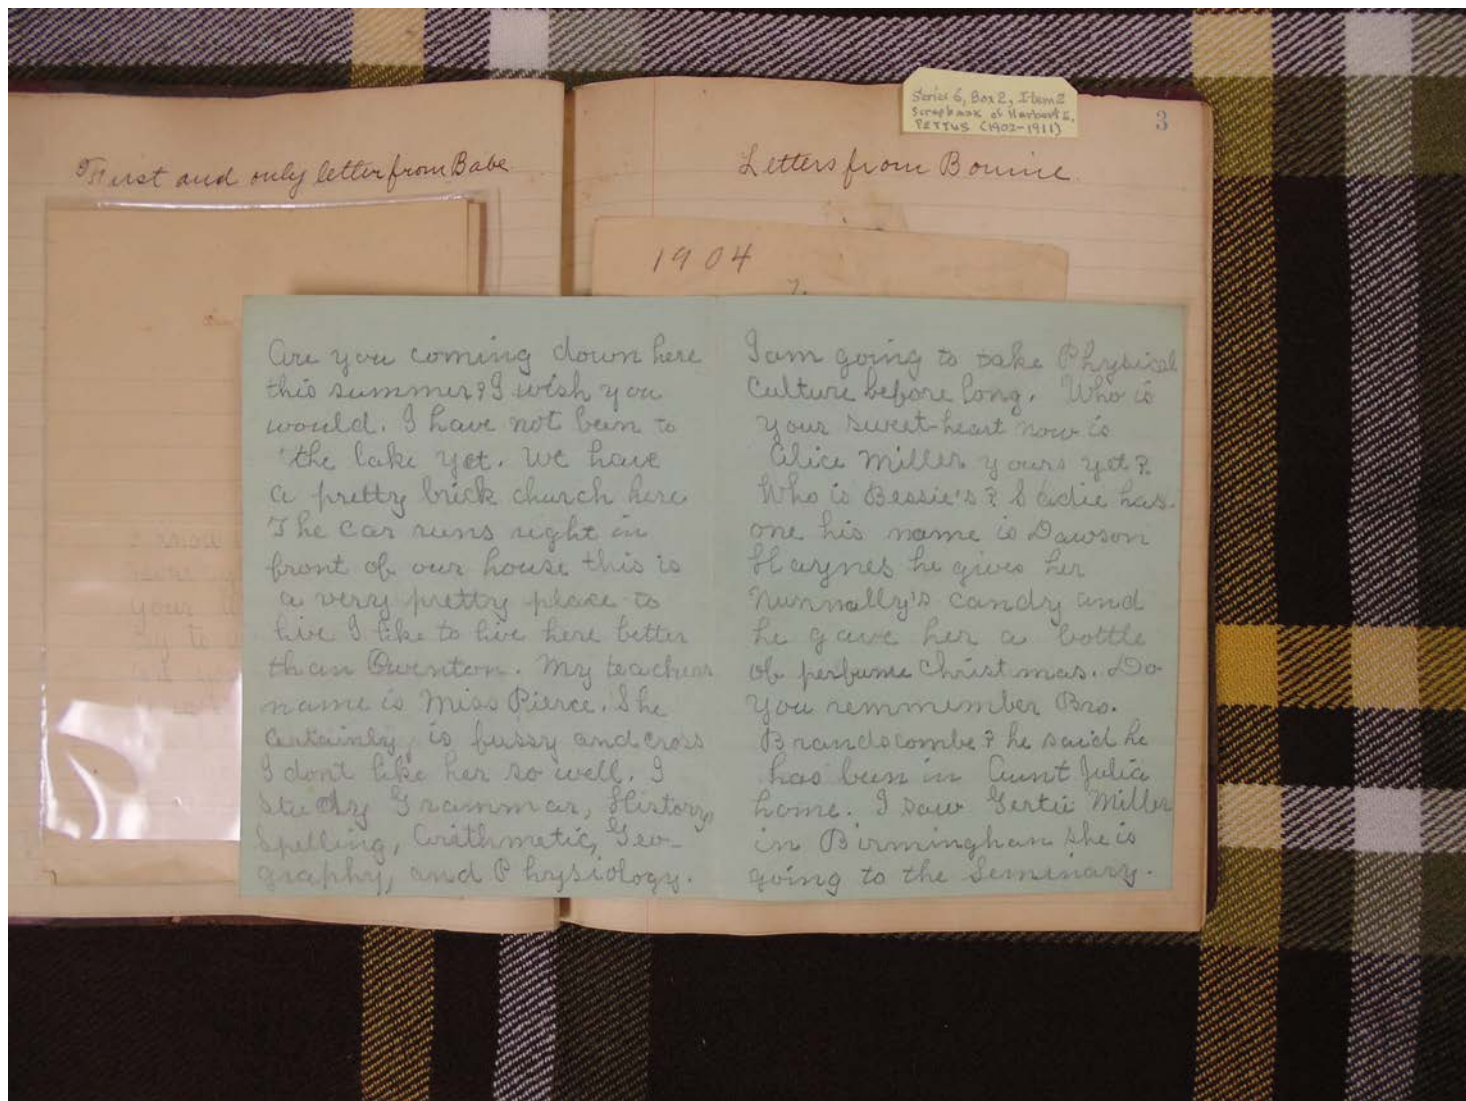 Series 6, Box 2, Item 2
Scrapbook of Herbert E.
PETTUS (1902-1911)
3
First and only letter from Babe
Letters from Bonnie
1904
Are you coming down here
this summer? I wish you
would. I have not been to
the lake yet. We have
a pretty brick church here
The car runs right in
front of our house this is
a very pretty place to
live I like to live here better
than Owenton. My teachers
name is Miss Pierce. She
certainly is fussy and cross
I dont like her so well. I
study Grammar, History,
Spelling, Arithmetic, Geo-
graphy, and Physiology.
I am going to take Physical
Culture before long. Who is
your sweet-heart now is
Alice Miller yours yet?
Who is Bessie's? Sadie has
one his name is Dawson
Haynes he gives her
Nunnally's candy and
he gave her a bottle
of perfume Christmas. Do
you remmember Bro.
Brandscombe? he said he
has been in Aunt Julia
home. I saw Gertie Miller
in Birmingham she is
going to the Seminary.